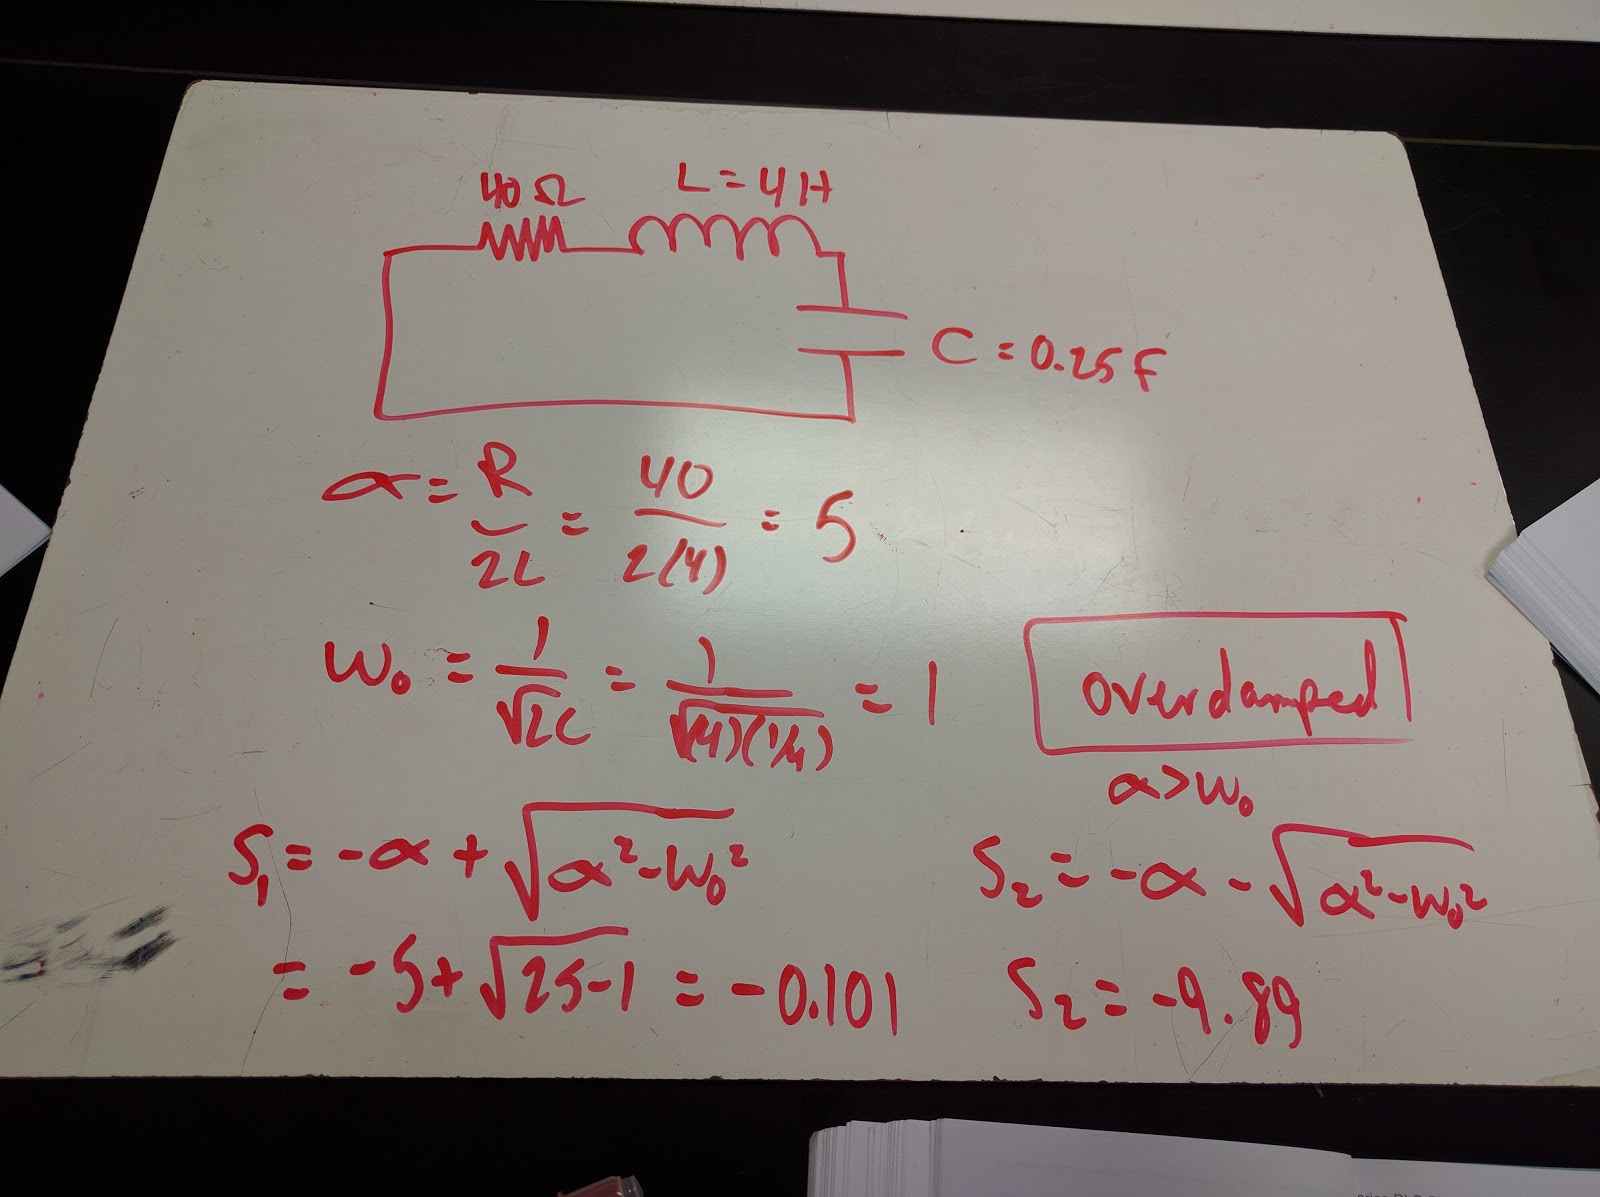 40 Ω
L = 4 H
C = 0.25 F
α = R/2L = 40/2(4) = 5
ω₀ = 1/√LC = 1/√(4)(1/4) = 1
overdamped
α > ω₀
S₁ = -α + √α² - ω₀²
= -5 + √25-1 = -0.101
S₂ = -α - √α² - ω₀²
S₂ = -9.89